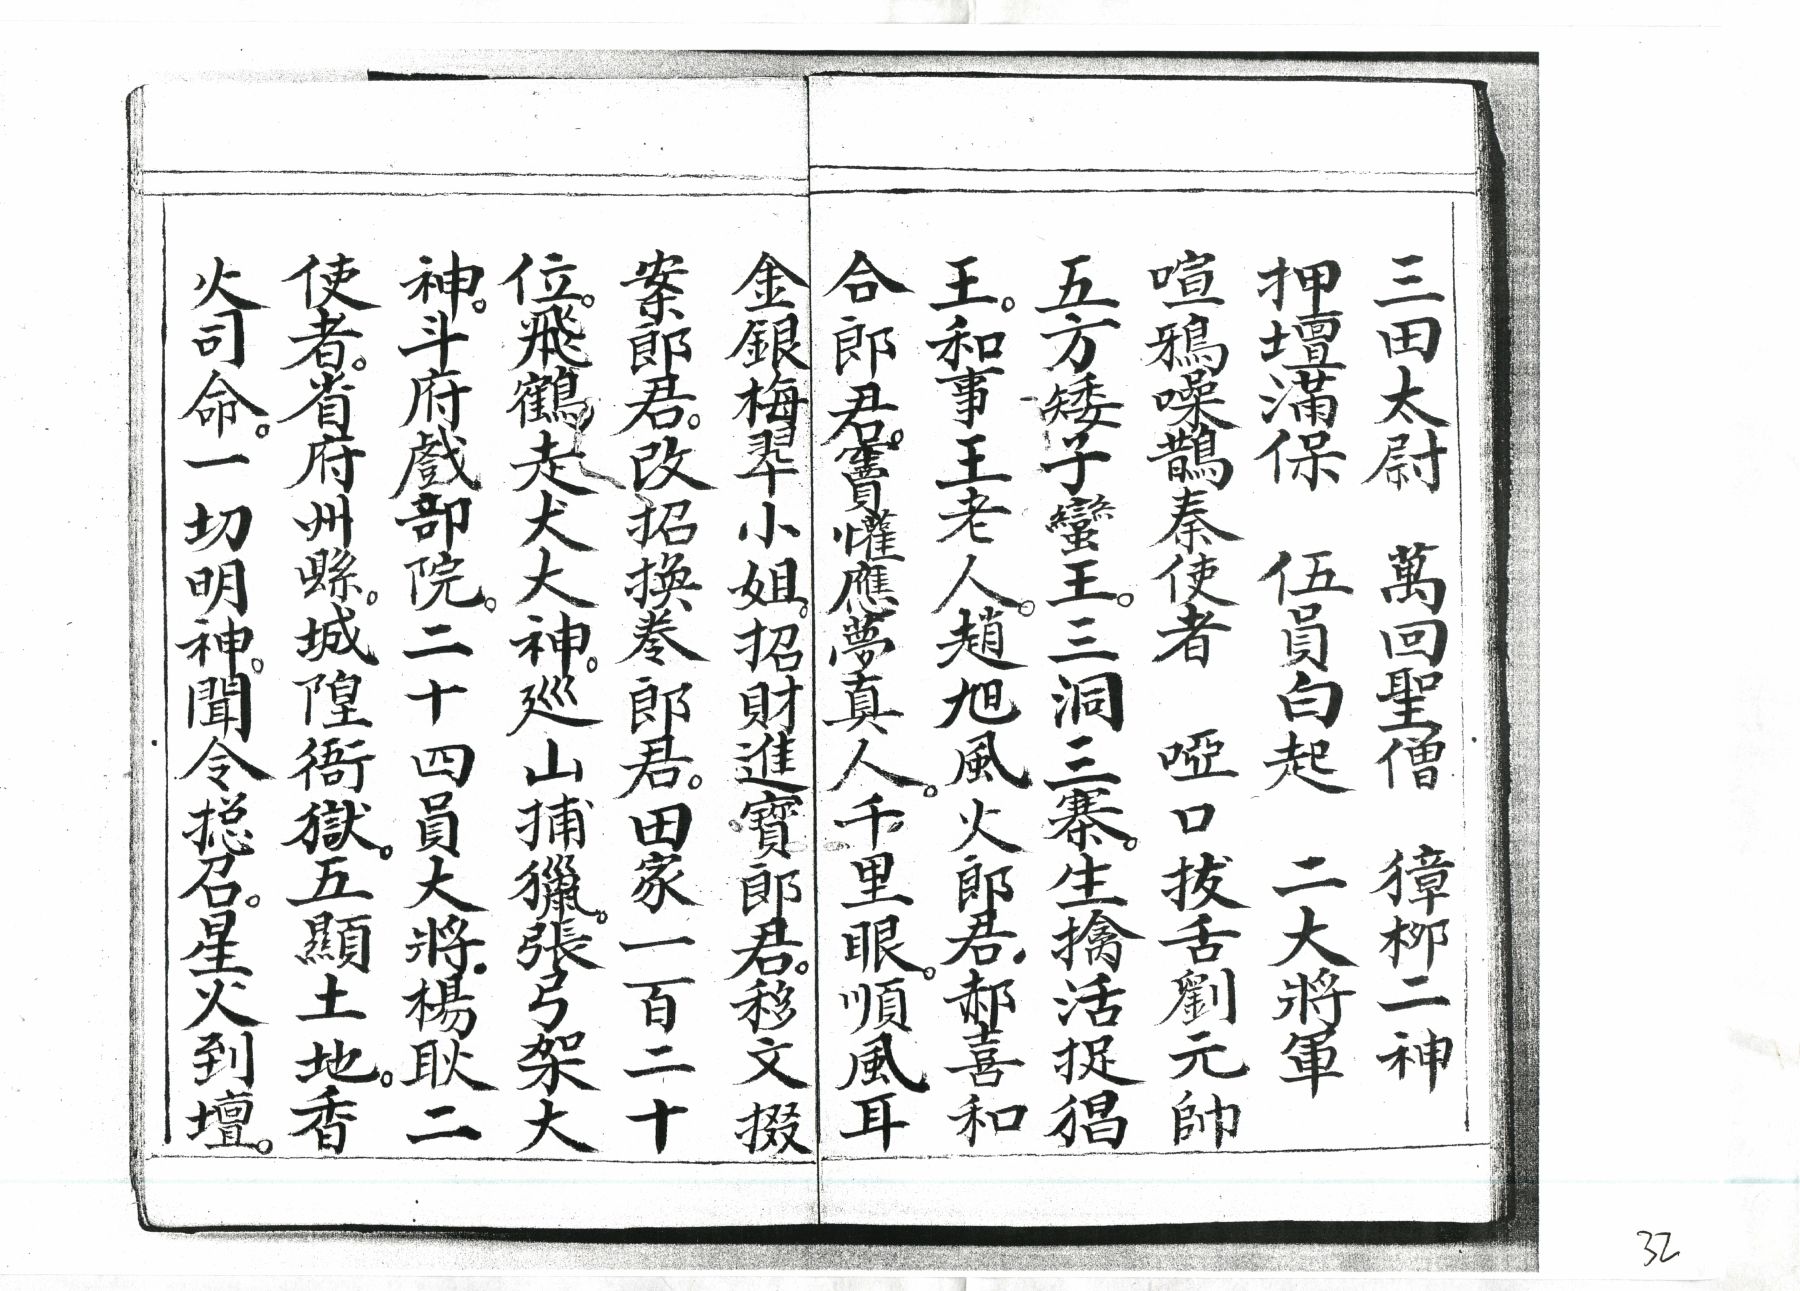 三田太尉　萬回聖僧　獐柳二神
押壇滿保　伍員白起　二大將軍
喧鴉噪鵲秦使者　啞口拔舌劉元帥
五方矮子蠻王。三洞三寨。生擒活捉猖
王。和事王老人。趙旭風火郎君。郝喜和
合郎君。賣懽應夢真人。千里眼。順風耳
金銀梅翠小姐。招財進寶郎君。移文掇
案郎君。改招換卷郎君。田家一百二十
位。飛鶴走犬大神。巡山捕獵。張弓架大
神。斗府戲部院。二十四員大將。楊耿二
使者。省府州縣。城隍衙獄。五顯土地。香
火司命。一切明神。聞令摠召。星火到壇。
32